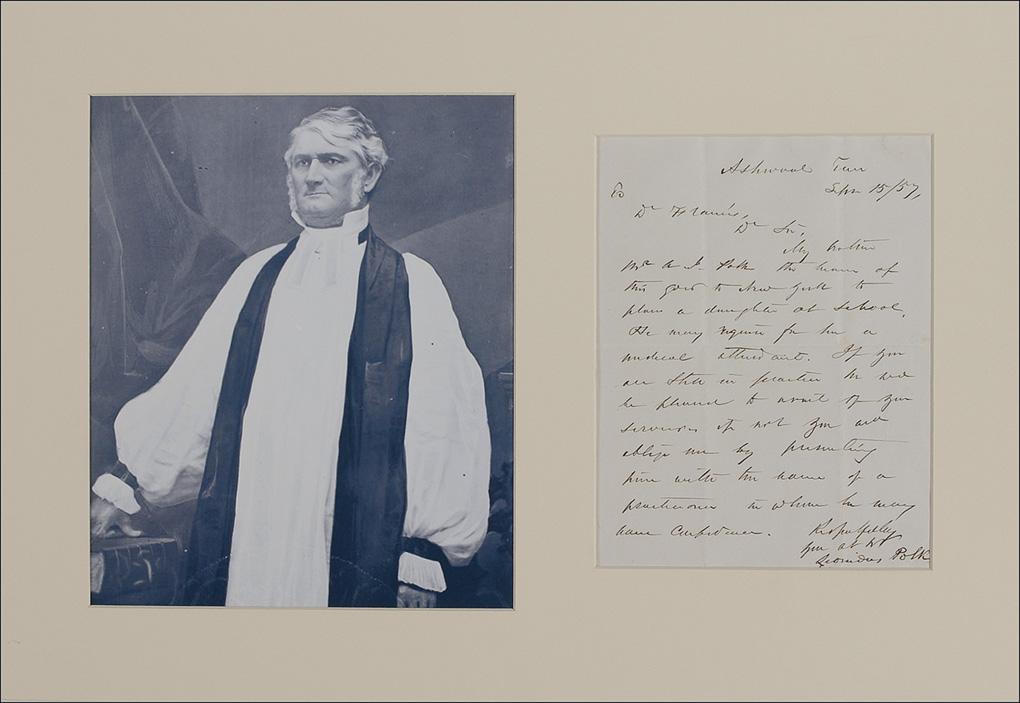 Ashwood Ten
Sep 15/57,
To
Dr Francis,
Dr Sir,
My brother
Mr A. J. Polk the bearer of
this goes to New York to
place a daughter at School.
He may require for her a
medical attendant. If you
are still in practice he will
be pleased to avail of your
services if not you will
oblige me by presenting
him with the name of a
practitioner in whom he may
have confidence.
Respectfully
Your ob st
Leonidas Polk